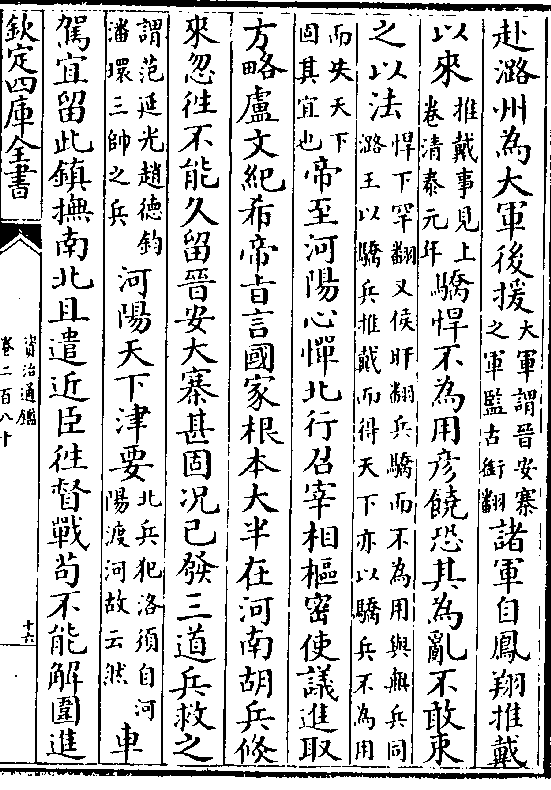 赴潞州為大軍後援大軍謂晉安寨之軍監古銜翻諸軍自鳳翔推戴
以來推戴事見上卷清泰元年驕悍不為用彦饒恐其為亂不敢束
之以法悍下罕翻又侯旰翻兵驕而不為用與無兵同潞王以驕兵推戴而得天下亦以驕兵不為用
而失天下固其宜也帝至河陽心憚北行召宰相樞密使議進取
方略盧文紀希帝旨言國家根本大半在河南胡兵倐
來忽往不能久留晉安大寨甚固况已發三道兵救之
謂范延光趙德鈞潘環三帥之兵河陽天下津要北兵犯洛須自河陽渡河故云然車
駕宜留此鎮撫南北且遣近臣往督戰苟不能解圍進
欽定四庫全書
資治通鑑
卷二百八十
十六